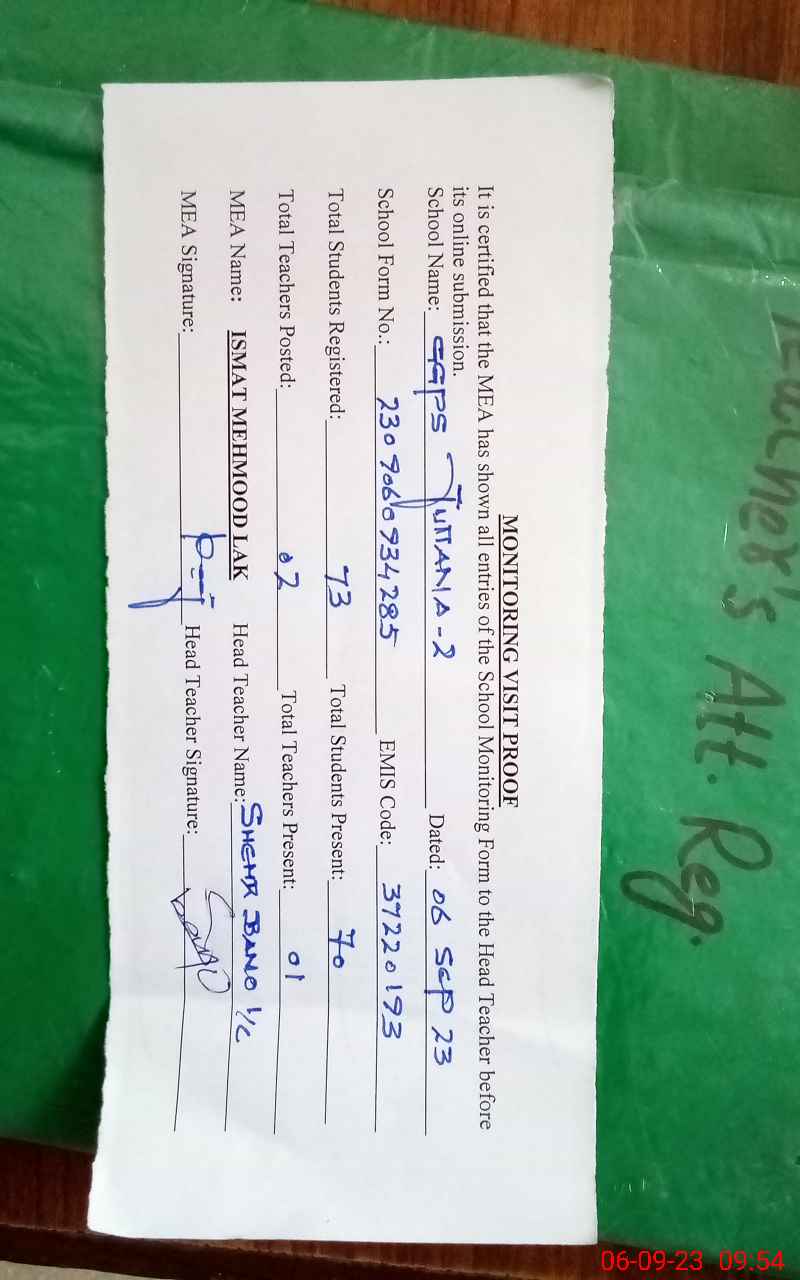 Teacher's Att. Reg.
MONITORING VISIT PROOF
It is certified that the MEA has shown all entries of the School Monitoring Form to the Head Teacher before
its online submission.
School Name: GGPS JUTTANA-2 Dated: 06 Sep 23
School Form No.: 2309060934285 EMIS Code: 37220193
Total Students Registered: 73 Total Students Present: 70
Total Teachers Posted: 02 Total Teachers Present: 01
MEA Name: ISMAT MEHMOOD LAK Head Teacher Name: SHEHR BANO I/C
MEA Signature: Head Teacher Signature:
06-09-23 09:54